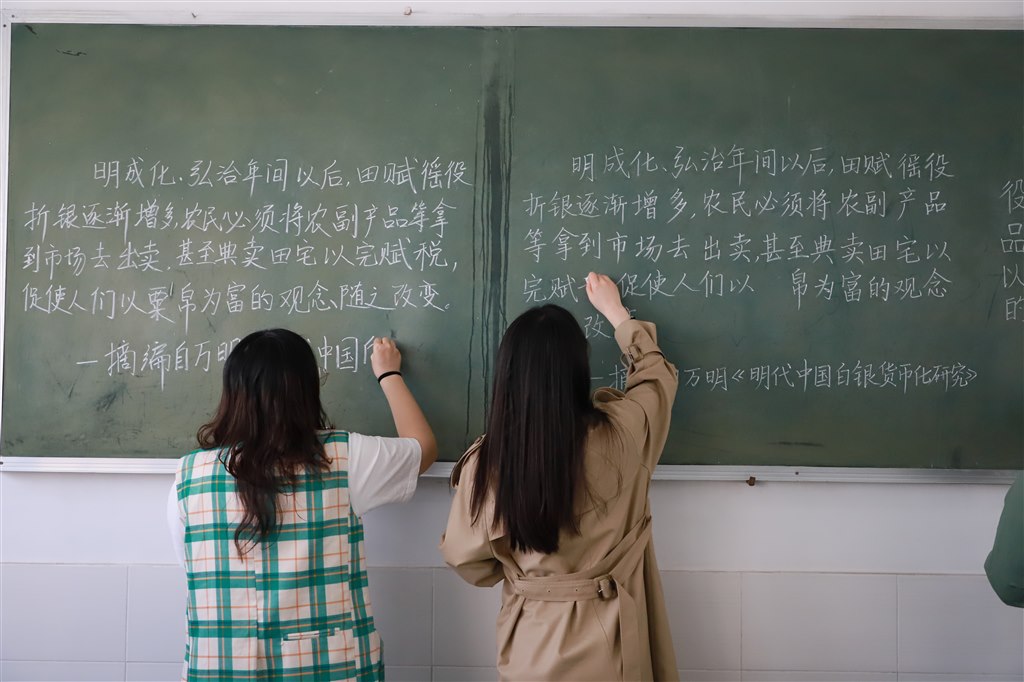 明成化、弘治年间以后,田赋徭役
折银逐渐增多,农民必须将农副产品等拿
到市场去出卖,甚至典卖田宅以完赋税,
促使人们以粟帛为富的观念、随之改变。
—摘编自万明 中国
明成化、弘治年间以后,田赋徭役
折银逐渐增多,农民必须将农副产品
等拿到市场去出卖,甚至典卖田宅以
完赋 促使人们以 帛为富的观念
改
—摘 万明《明代中国白银货币化研究》
役
品
以
的